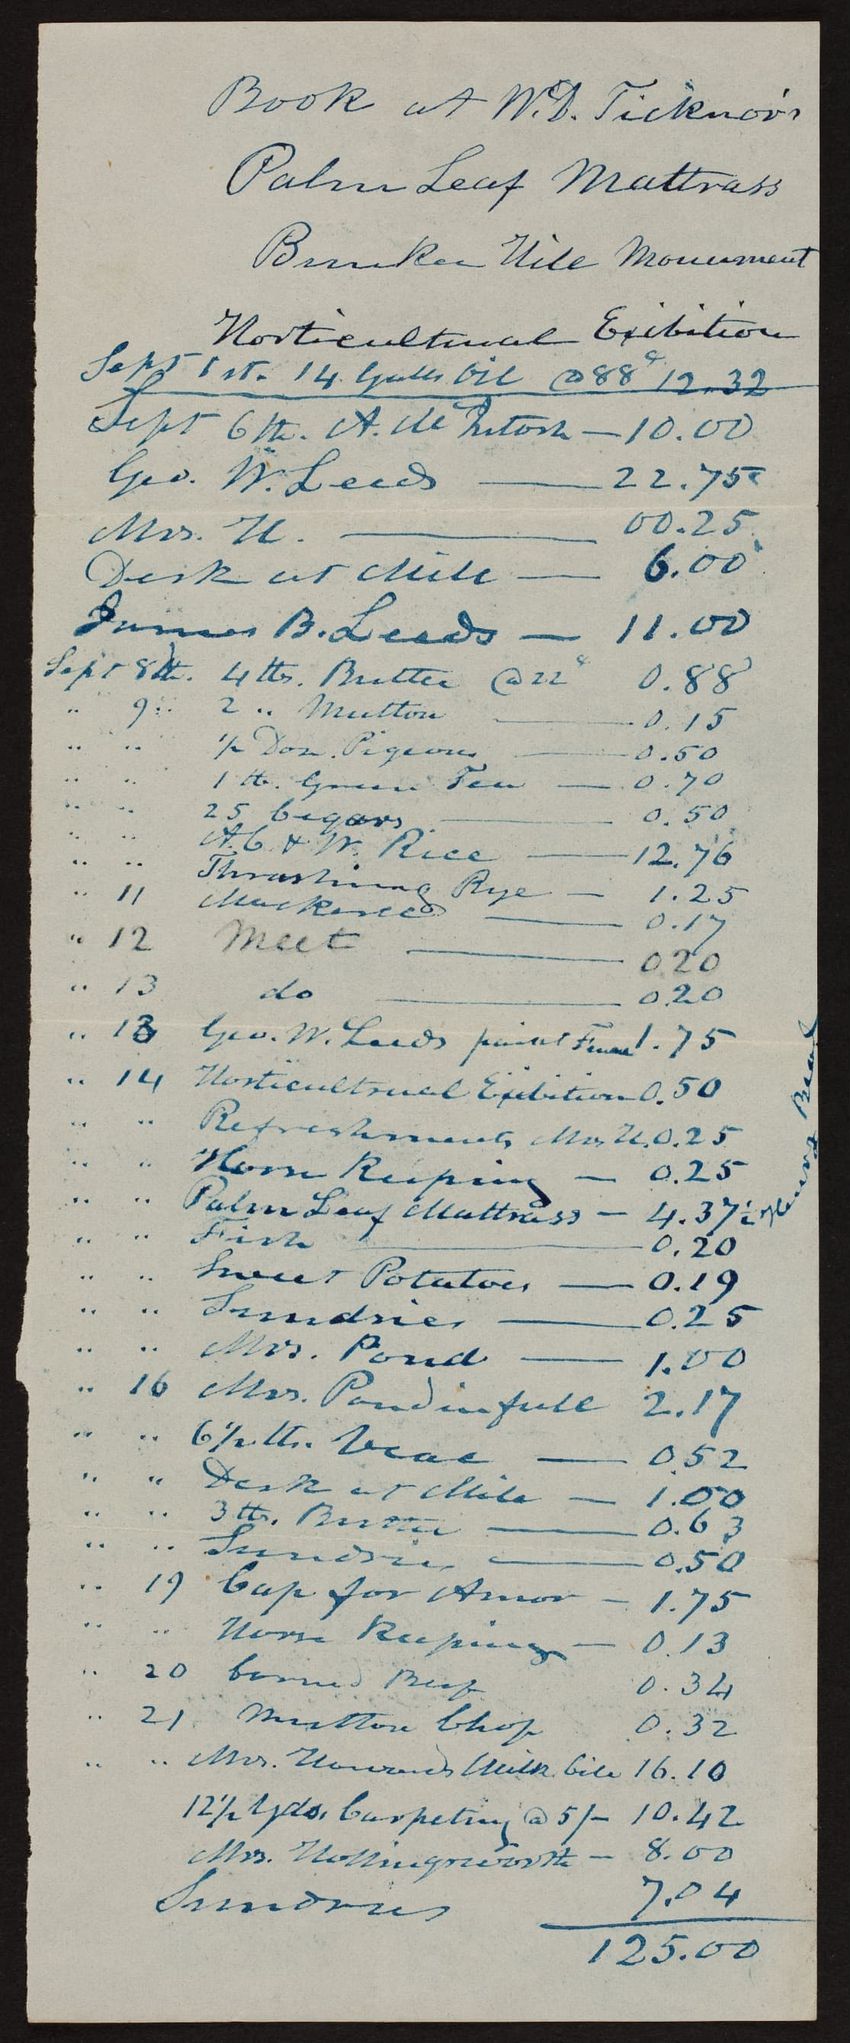 Book at W.D. Ticknor's
Palm Leaf Mattrass
Bunker Hill Monument
Horticultural Exibition
Sept 1st. 14 Galls Oil @ 88c 12.32
Sept 6th. A. McIntosh — 10.00
Geo. W. Leeds — 22.75
Mrs. H. — 00.25
Desk at Mill — 6.00
James B. Leeds — 11.00
Sept 8th. 4 lbs. Butter @ 22c 0.88
" 9 " 2 " Mutton — 0.15
" " 1/2 Doz. Pigeons — 0.50
" " 1 lb. Green Tea — 0.70
" " 25 Cegars — 0.50
" " A.C. & W. Rice — 12.76
" " Thrashing Rye — 1.25
" 11 Mackerel — 0.17
" 12 Meet — 0.20
" 13 do — 0.20
" 13 Geo. W. Leeds paint 1.75
" 14 Horticultrual Exibition 0.50
" " Refreshments Mrs H. 0.25
" " Horse Keeping — 0.25
" " Palm Leaf Mattrass — 4.37 1/2
" " Fish — 0.20
" " Sweet Potatoes — 0.19
" " Sundries — 0.25
" " Mrs. Pond — 1.00
" 16 Mrs. Pond in full 2.17
" " 6 1/2 lbs. Veal — 0.52
" " Desk at Mill — 1.00
" " 3 lbs. Butter — 0.63
" " Sundries — 0.50
" 19 Cap for Amor — 1.75
" " Horse Keeping — 0.13
" 20 Corned Beef 0.34
" 21 Mutton Chop 0.32
" " Mrs. Howards Milk bill 16.10
12 1/2 Yds. Carpeting @ 5/- 10.42
Mrs. Hollingsworth — 8.00
Sundries 7.04
125.00